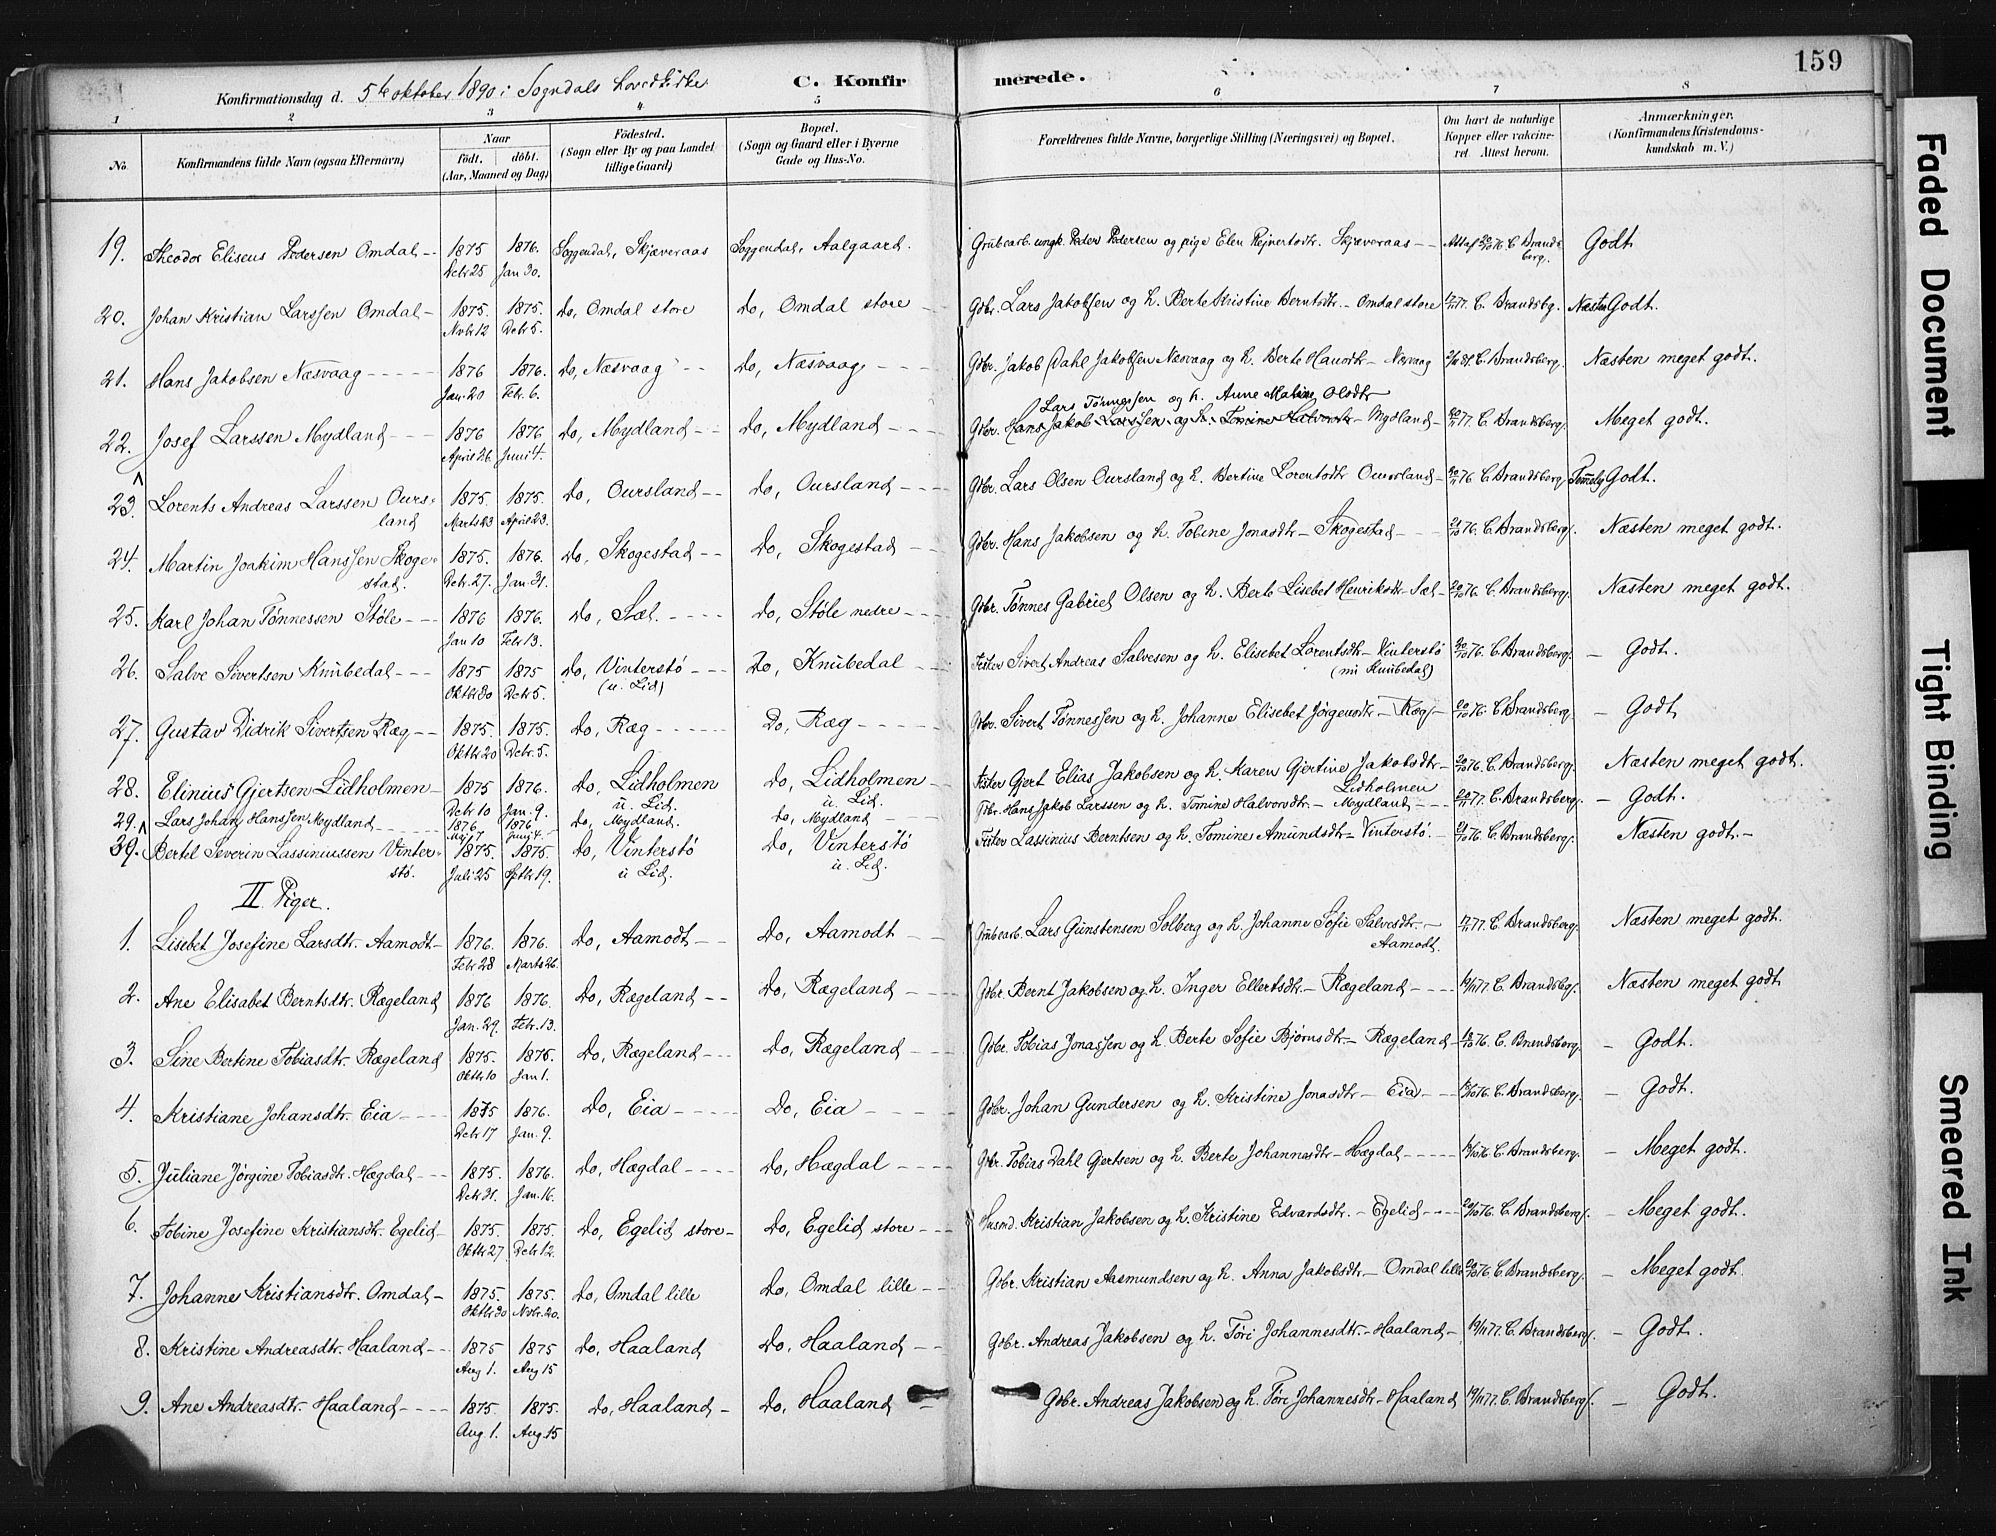 159
Konfirmationsdag d. 5te oktober 1890 i Sogndals hovedkirke C. Konfirmerede.
1 2 3 4 5 6 7 8
No. Konfirmandens fulde Navn (ogsaa Efternavn) Naar født. døbt. (Aar, Maaned og Dag) Fødested. (Sogn eller By og paa Landet tillige Gaard) Bopæl. (Sogn og Gaard eller i Byerne Gade og Hus-No. Forældrenes fulde Navne, borgerlige Stilling (Næringsvei) og Bopæl. Om havt de naturlige Kopper eller vaccineret. Attest herom. Anmærkninger. (Konfirmandens Kristendomskundskab m. V.)
19. Theodor Eliseus Pedersen Omdal 1875 Dcbr 25 1876. Jan 30. Soggendal, Skjæveraas Soggendal, Aalgaard. Grubearb. ungk. Peder Pedersen og pige Elen Rejnertsdtr. Skjæveraas C. Brandsberg. Godt
20. Johan Kristian Larssen Omdal 1875. Novbr 12 1875. Dcbr 5. Do, Omdal store Do, Omdal store Gbr. Lars Jakobsen og h. Berte Kristine Berntsdtr. - Omdal store 77. C. Brandsbg. Næsten Godt.
21. Hans Jakobsen Næsvaag 1876 Jan. 20 1876. Febr. 6. Do, Næsvaag Do, Næsvaag Gbr. Jakob Dahl Jakobsen Næsvaag og h. Berte Hansdtr - Næsvaag 81 C. Brandsberg. Næsten meget godt.
22. Josef Larssen Mydland 1876 April 26 1876 Juni 4. Do, Mydland Do, Mydland Lars Tønnessen og h. Anne Malene Olsdtr
Gbr. Hans Jakob Larssen og h. Tomine Halvorsdtr - Mydland 77. C. Brandsberg. Meget godt.
23. Lorents Andreas Larssen Oursland 1875. Marts 23 1875. April 23. Do, Oursland Do, Oursland Gbr. Lars Olsen Oursland og h. Bertine Lorentsdtr Oursland 76. C. Brandsberg. Temelig Godt.
24. Martin Joakim Hanssen Skogestad. 1875. Dcbr. 27. 1876. Jan. 31. Do, Skogestad Do, Skogestad Gbr. Hans Jakobsen og h. Tobine Jonasdtr - Skogestad 76. C. Brandsberg. Næsten meget godt.
25. Karl Johan Tønnessen Støle 1876 Jan 10 1876. Febr 13. Do, Sæl. Do, Støle nedre Gbr. Tønnes Gabriel Olsen og h. Berte Lisebet Henriksdtr - Sæl 76. C. Brandsberg. Næsten meget godt.
26. Salve Sivertsen Knubedal 1875 Oktbr 30 1875 Dcbr 5. Do, Vinterstø (u. Lid) Do, Knubedal Fisker Sivert Andreas Salvesen og h. Elisebet Lorentsdtr - Vinterstø (nu Knubedal) 76. C. Brandsberg. - Godt.
27. Gustav Didrik Sivertsen Ræg 1875. Oktbr 20 1875. Dcbr. 5. Do, Ræg Do, Ræg Gbr. Sivert Tønnessen og h. Johanne Elisebet Jørgensdtr - Ræg 76. C. Brandsberg. - Godt
28. Elinius Gjertsen Lidholmen 1875 Dcbr 10 1876. Jan. 9. Do, Lidholmen u. Lid. Do, Lidholmen u. Lid. Fisker Gjert Elias Jakobsen og h. Karen Gjertine Jakobsdtr - Lidholmen 76. C. Brandsberg. Næsten meget godt.
29. Lars Johan Hanssen Mydland 1876 Maj 7 1876 Juni 4. Do, Mydland. Do, Mydland Gbr. Hans Jakob Larssen og h. Tomine Halvorsdtr. - Mydland 77. C. Brandsberg. - Godt.
39. Bertel Severin Lassiniussen Vinterstø. 1875. Juli 25 1875. Septbr 19. Do, Vinterstø u Lid. Do, Vinterstø u. Lid. Fisker Lassinius Berntsen og h. Tomine Amundsdtr - Vinterstø. 76. C. Brandsberg. Næsten godt. -
II. Piger.
1. Lisebet Josefine Larsdtr. Aamodt 1876. Febr 28 1876. Marts 26. Do, Aamodt Do, Aamodt Grubearb. Lars Gunstensen Solberg og h. Johanne Sofie Salvesdtr. - Aamodt. 77. C. Brandsberg. Næsten meget godt.
2. Ane Elisabet Berntsdtr. Rægeland 1876 Jan. 29 1876. Febr. 13. Do, Rægeland Do, Rægeland Gbr. Bernt Jakobsen og h. Inger Ellertsdtr. - Rægeland 77. C. Brandsbg. Næsten meget godt
3. Sine Bertine Tobiasdtr. Rægeland 1875. Oktbr 10 1876. Jan 1. Do, Rægeland Do, Rægeland Gbr. Tobias Jonassen og h. Berte Sofie Bjørnsdtr. - Rægeland 76. C. Brandsberg. - Godt.
4. Kristiane Johansdtr. Eia 1875 Dcbr 17 1876. Jan. 9. Do, Eia Do, Eia Gbr. Johan Gundersen og h. Kristine Jonasdtr - Eia 76. C. Brandsberg. - Godt.
5. Juliane Jørgine Tobiasdtr. Hægdal 1875. Dcbr 31. 1876. Jan. 16. Do, Hægdal Do, Hægdal Gbr. Tobias Dahl Gjertsen og h. Berte Johannesdtr - Hægdal 76. C. Brandsberg. - Meget godt.
6. Tobine Josefine Kristiansdtr. Egelid 1875. Oktbr 27 1875. Dcbr 12. Do, Egelid store Do, Egelid store Husmd. Kristian Jakobsen og h. Kristine Edvardsdtr. - Egelid 76. C. Brandsberg. - Meget godt.
7. Johanne Kristiansdtr. Omdal 1875. Oktbr 30 1875. Novbr. 20. Do, Omdal lille Do, Omdal lille Gbr. Kristian Aasmundsen og h. Anna Jakobsdtr - Omdal lille 76. C. Brandsberg. - Meget godt.
8. Kristine Andreasdtr. Haaland 1875 Aug 1. 1875 Aug 15 Do, Haaland Do, Haaland Gbr. Andreas Jakobsen og h. Tøri Johannesdtr. - Haaland 19/1 77. C. Brandsberg. - Godt.
9. Ane Andreasdtr. Haaland 1875. Aug. 1. 1875. Aug. 15 Do, Haaland Do, Haaland Gbr. Andreas Jakobsen og h. Tøri Johannesdtr. - Haaland 19/1 77. C. Brandsberg. - Godt.
Faded Document
Tight Binding
Smeared Ink